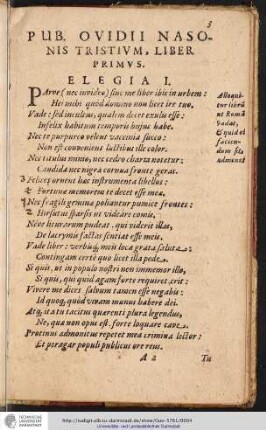 5
PUB. OVIDII NASO-
NIS TRISTIUM, LIBER
PRIMUS.
ELEGIA I.
PArve (nec invideo) sine me liber ibis in urbem:
Hei mihi quòd domino non licet ire tuo.
Vade: sed incultus, qualem decet exulis esse:
Infelix habitum temporis hujus habe.
Nec te purpureo velent vaccinia succo:
Non est conveniens luctibus ille color.
Nec titulus minio, nec cedro charta notetur:
Candida nec nigra cornua fronte geras.
Felices ornent hæc instrumenta libellos:
Fortunæ memorem te decet esse meæ.
Nec fragili geminæ poliantur pumice frontes:
Hirsutus sparsis ut videare comis.
Neve liturarum pudeat. qui viderit illas,
De lacrymis factas sentiat esse meis.
Vade liber: verbisq́; meis loca grata saluta:
Contingam certè quo licet illa pede.
Si quis, ut in populo nostri non immemor illo,
Si quis, qui quid agam forte requiret, erit:
Vivere me dices, salvum tamen esse negabis:
Id quoq́; quòd vivam munus habere dei.
Atq́; ita tu tacitus quærenti plura legendus,
Ne, quæ non opus est, forte loquare cave.
Protinus admonitus repetet mea crimina lector:
Et peragar populi publicus ore reus.
A 2 Tu
Alloqui-
tur librũ
ut Romã
vadat,
& quid ei
facien-
dum sit,
admonet